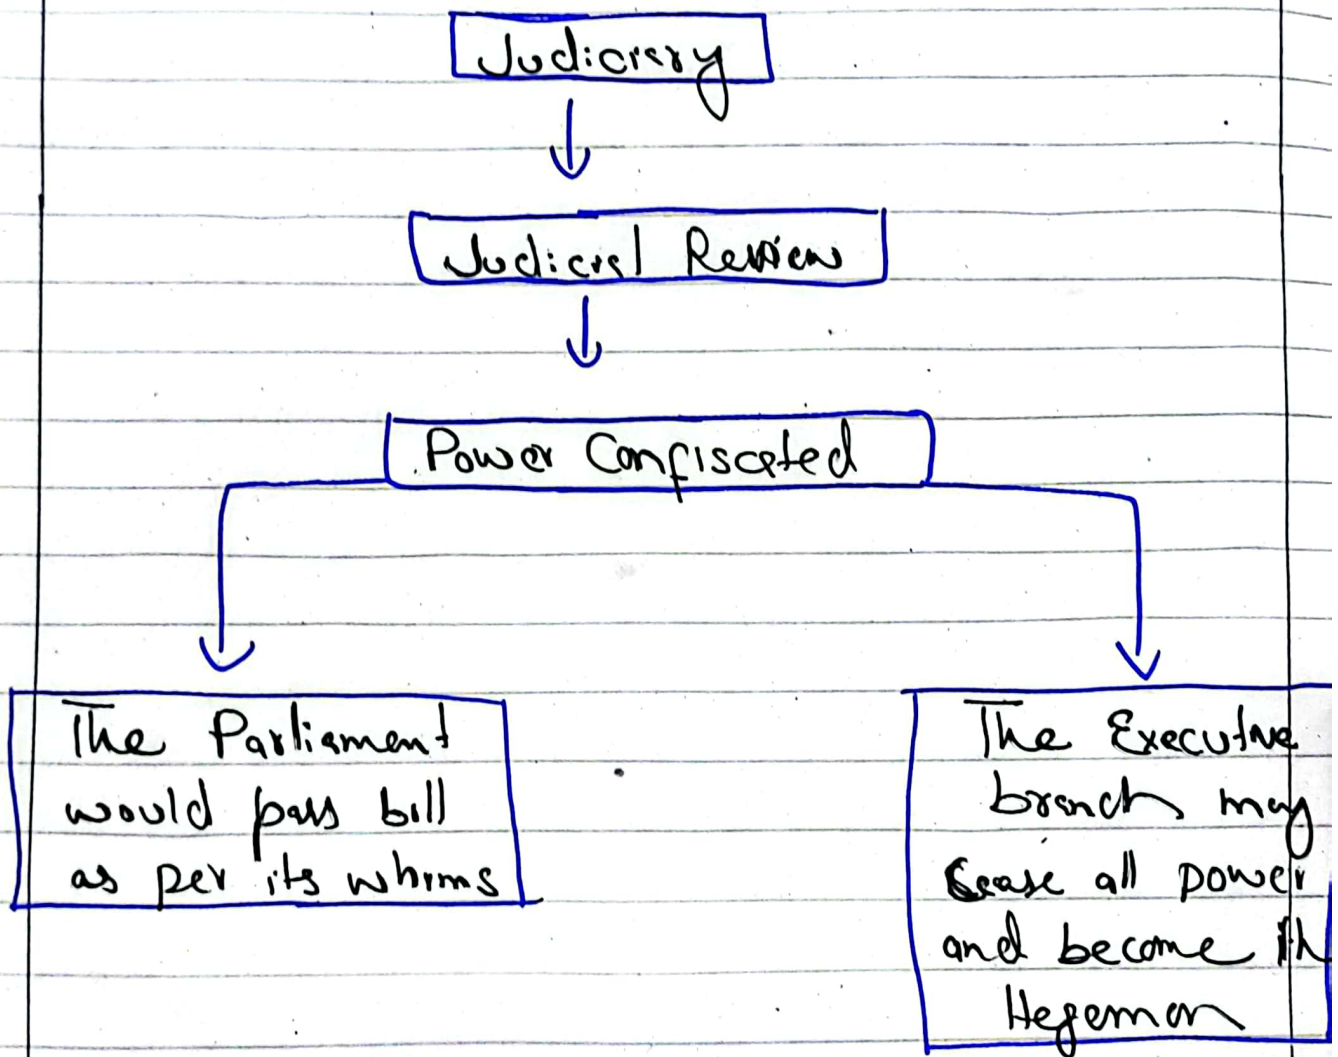 Judiciary
Judicial Review
Power Confiscated
The Parliament
would pass bill
as per its whims
The Executive
branch may
cease all power
and become th
Hegemon